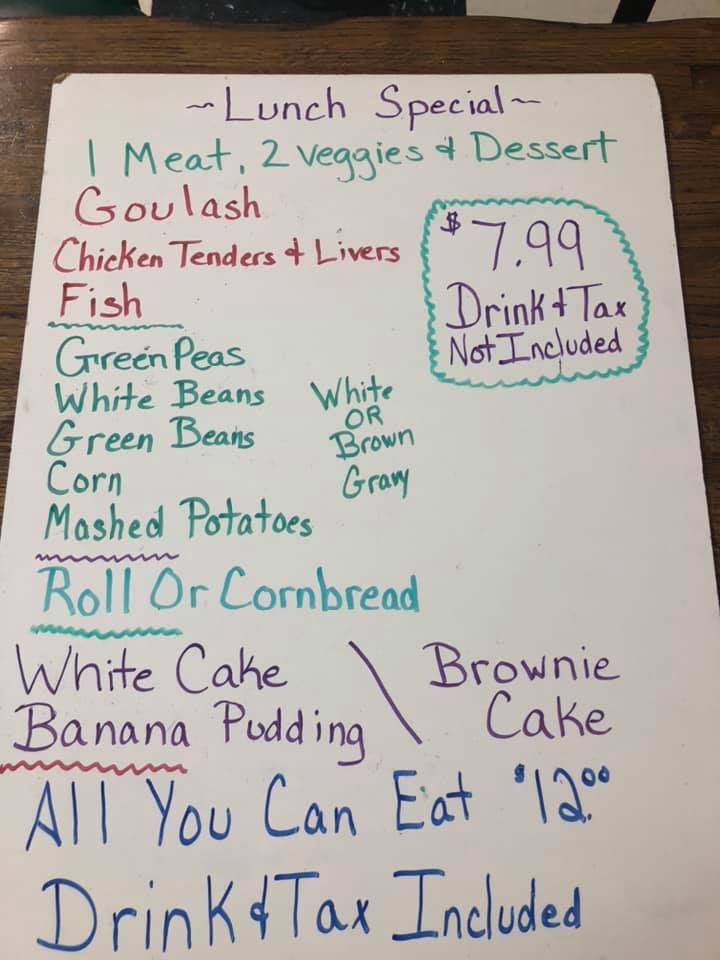 ~Lunch Special~
1 Meat, 2 Veggies & Dessert
Goulash
Chicken Tenders & Livers
Fish
$7.99
Drink & Tax
Not Included
Green Peas
White Beans
Green Beans
Corn
Mashed Potatoes
White
OR
Brown
Gravy
Roll Or Cornbread
White Cake \ Brownie
Banana Pudding Cake
All You Can Eat $12.00
Drink & Tax Included